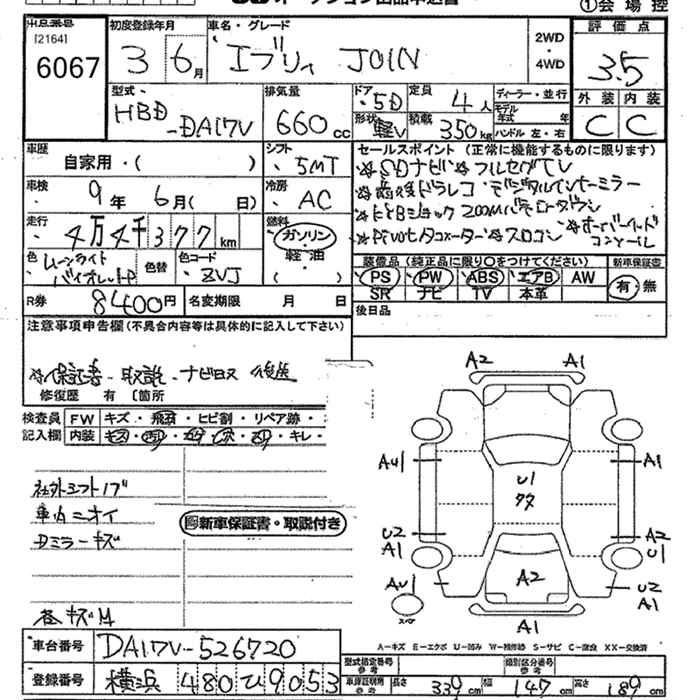 ①会場控
出品番号
[2164]
6067
初度登録年月
3 6月
車名・グレード
エブリィ JOIN
2WD
・
4WD
評価点
3.5
型式・
HBD-DA17V
排気量
660cc
ドア・5D
形状 軽V
定員 4人
積載 350kg
ディーラー・並行
モデル年式 年
ハンドル 左・右
外装 内装
C C
車歴
自家用・( )
シフト
・5MT
セールスポイント (正常に機能するものに限ります)
☆SDナビ☆フルセグTV
☆前後ドラレコ・デジタルインナーミラー
☆Pivotタコメーター・スロコン
車検 9年 6月( 日)
冷房
・AC
走行 4万4千377km
燃料
ガソリン・
軽油
・( )
色 ムーンライトバイオレットP
色替
色コード
・ZVJ
装備品 (純正品に限り○をつけてください)
新車保証書
PS PW ABS エアB AW
SR ナビ TV 本革
有・無
R券 8400円
名変期限 月 日
後日品
注意事項申告欄(不具合内容等は具体的に記入して下さい)
☆保証書・取説・ナビ取説 後送
修復歴 有 〔箇所
検査員 FW キズ・飛石・ヒビ割・リペア跡・
記入欄 内装
・キレ・
社外シフトノブ
車内ニオイ
Dミラーキズ
新車保証書・取説付き
キズM
A2 A1
AU1 A1
U1
タタ
U2 A1
A2 U1
AU1
A2
U2 A1
A1
A-キズ E-エクボ U-凹み W-補修跡 S-サビ C-腐食 XX-交換済
車台番号 DA17V-526720
登録番号 横浜 480ひ9053
型式指定番号 参考
類別区分番号 参考
車庫証明用 参考 長さ 339 幅 147 高さ 189